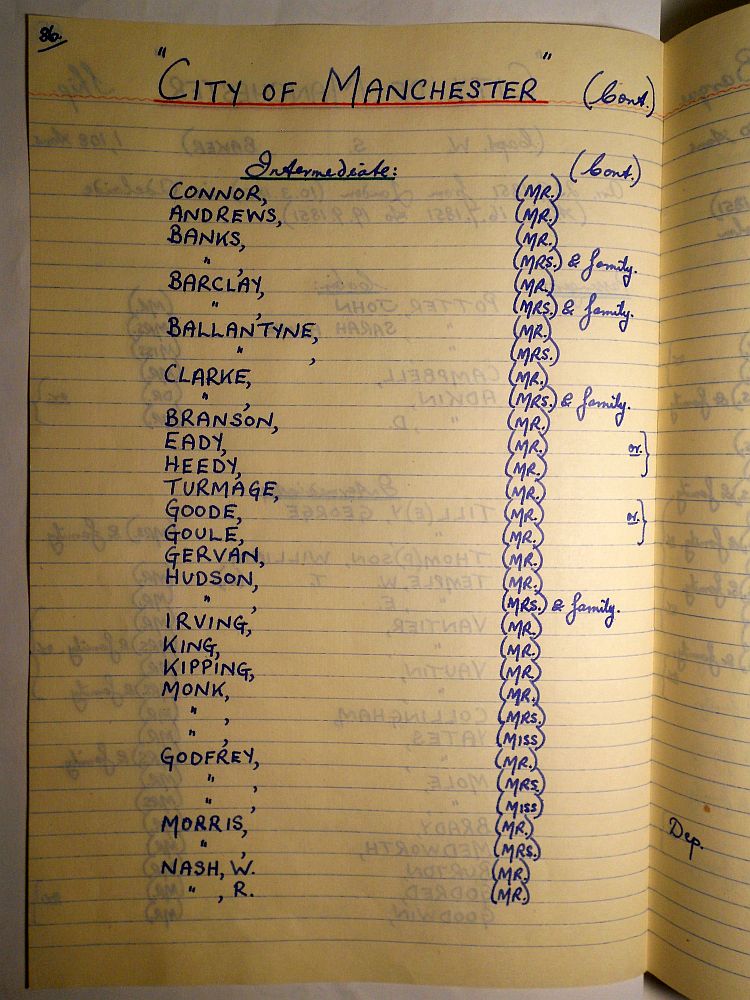 86.
"CITY OF MANCHESTER" (Cont.)
Intermediate: (Cont.)
CONNOR, (MR.)
ANDREWS, (MR.)
BANKS, (MR.)
" , (MRS.) & family.
BARCLAY, (MR.)
" , (MRS.) & family.
BALLANTYNE, (MR.)
" , (MRS.)
CLARKE, (MR.)
" , (MRS.) & family.
BRANSON, (MR.)
EADY, (MR.) or. }
HEEDY, (MR.)
TURMAGE, (MR.)
GOODE, (MR.) or. }
GOULE, (MR.)
GERVAN, (MR.)
HUDSON, (MR.)
" , (MRS.) & family.
IRVING, (MR.)
KING, (MR.)
KIPPING, (MR.)
MONK, (MR.)
" , (MRS.)
" , (MISS)
GODFREY, (MR.)
" , (MRS.)
" , (MISS)
MORRIS, (MR.)
" , (MRS.)
NASH, W. (MR.)
" , R. (MR.)
Dep.